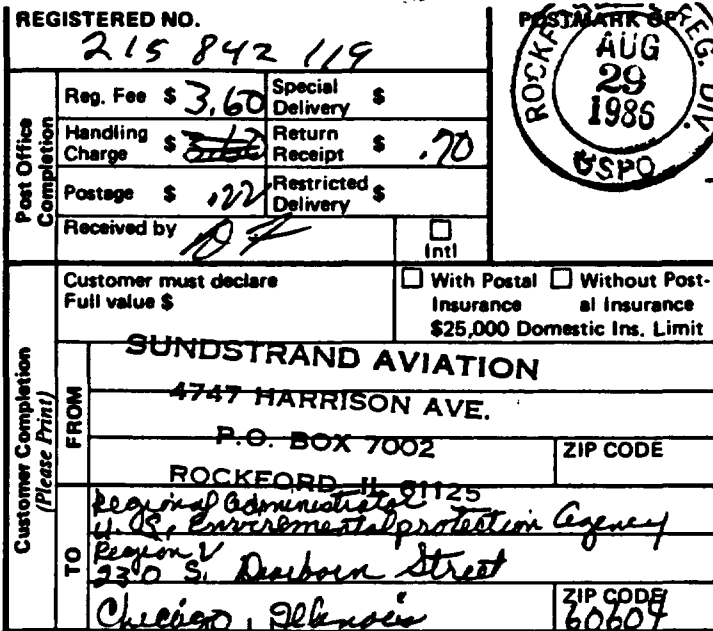 REGISTERED NO.
215 842 119
POSTMARK OF
REG. DIV.
AUG
29
1986
USPO
Post Office Completion
Reg. Fee $ 3.60
Special Delivery $
Handling Charge $
Return Receipt $ .70
Postage $ .22
Restricted Delivery $
Received by
Intl
Customer Completion
(Please Print)
Customer must declare
Full value $
With Postal Insurance
Without Post-al Insurance
$25,000 Domestic Ins. Limit
FROM
SUNDSTRAND AVIATION
4747 HARRISON AVE.
P.O. BOX 7002
ZIP CODE
ROCKFORD IL 61125
TO
Regional Administrator
U.S. Enviremental protection Agency
Region V
230 S. Dearborn Street
Chicago, Illinois
ZIP CODE
60604